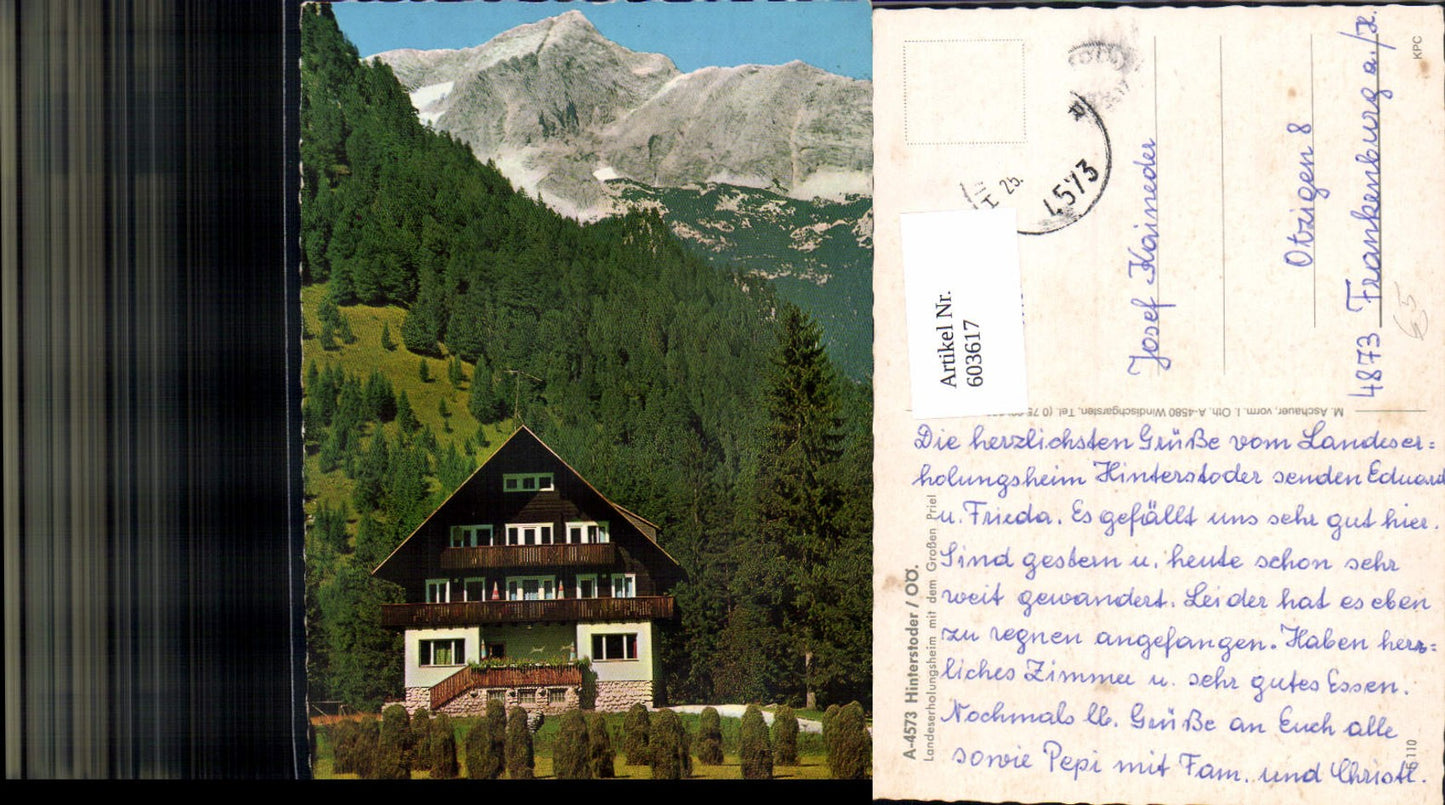 Die herzlichsten Grüße vom Landeser=
holungsheim Hinterstoder senden Eduard
u. Frieda. Es gefällt uns sehr gut hier.
Sind gestern u. heute schon sehr
weit gewandert. Leider hat es eben
zu regnen angefangen. Haben herr=
liches Zimmer u. sehr gutes Essen.
Nochmals lb. Grüße an Euch alle
sowie Pepi mit Fam. und Christl.
Josef Kaineder
Otzigen 8
4873 Frankenburg a./H.
Artikel Nr.
603617
4573
25.
KPC
€5
M. Aschauer, vorm. I. Oth, A-4580 Windischgarsten, Tel. (0 75
A-4573 Hinterstoder / OÖ.
Landeserholungsheim mit dem Großen Priel
110